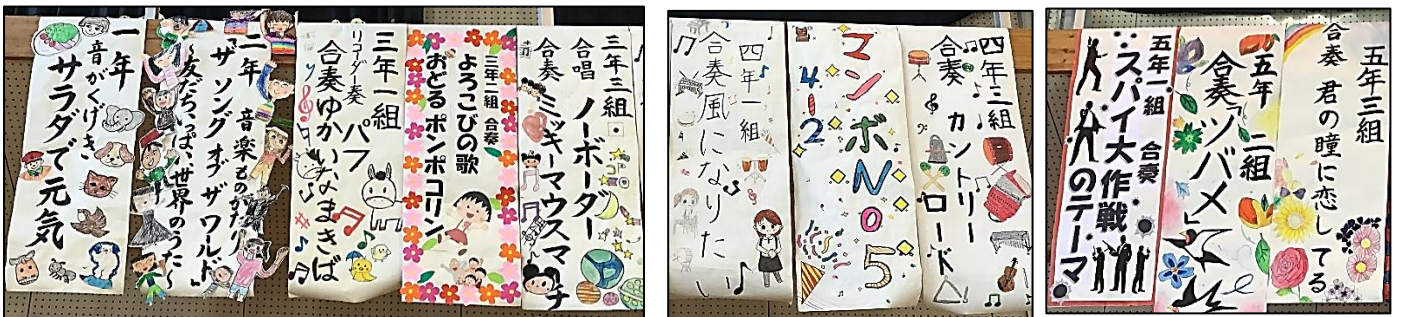 一年
音がくげき
サラダで元気
二年 音楽ものがたり
「ザ ソング オブ ザ ワールド
～友だちいっぱい、世界のうた～」
三年一組
リコーダー奏 パフ
合奏 ゆかいなまきば
三年二組 合奏
よろこびの歌
おどるポンポコリン
三年三組
合唱 ノーボーダー
合奏 ミッキーマウスマーチ
四年一組
合奏 風になりたい
マンボNo5
4の2
四年三組
合奏 カントリーロード
五年一組 合奏
スパイ大作戦のテーマ
五年二組
合奏「ツバメ」
五年三組
合奏 君の瞳に恋してる